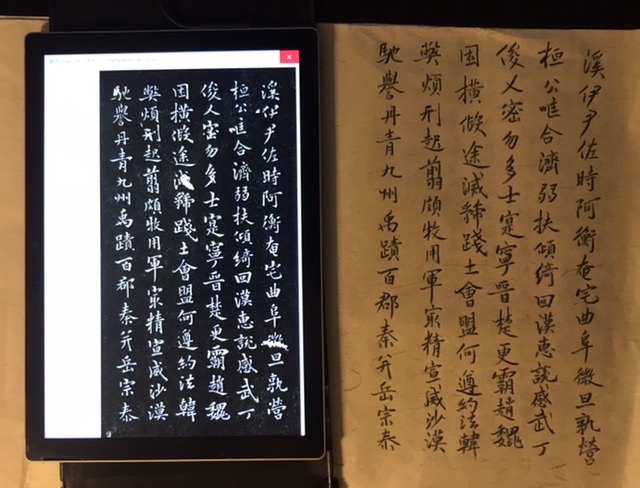 溪伊尹佐時阿衡奄宅曲阜微旦孰營
桓公唯合濟弱扶傾綺回漢惠說感武丁
俊乂密勿多士寔寧晉楚更霸趙魏
困橫假途滅虢踐土會盟何遵約法韓
弊煩刑起翦頗牧用軍㝡精宣威沙漠
馳譽丹青九州禹蹟百郡秦并岳宗泰
溪伊尹佐時阿衡奄宅曲阜微旦孰營
桓公唯合濟弱扶傾綺回漢惠說感武丁
俊乂密勿多士寔寧晉楚更霸趙魏
困橫假途滅虢踐土會盟何遵約法韓
弊煩刑起翦頗牧用軍㝡精宣威沙漠
馳譽丹青九州禹蹟百郡秦并岳宗泰